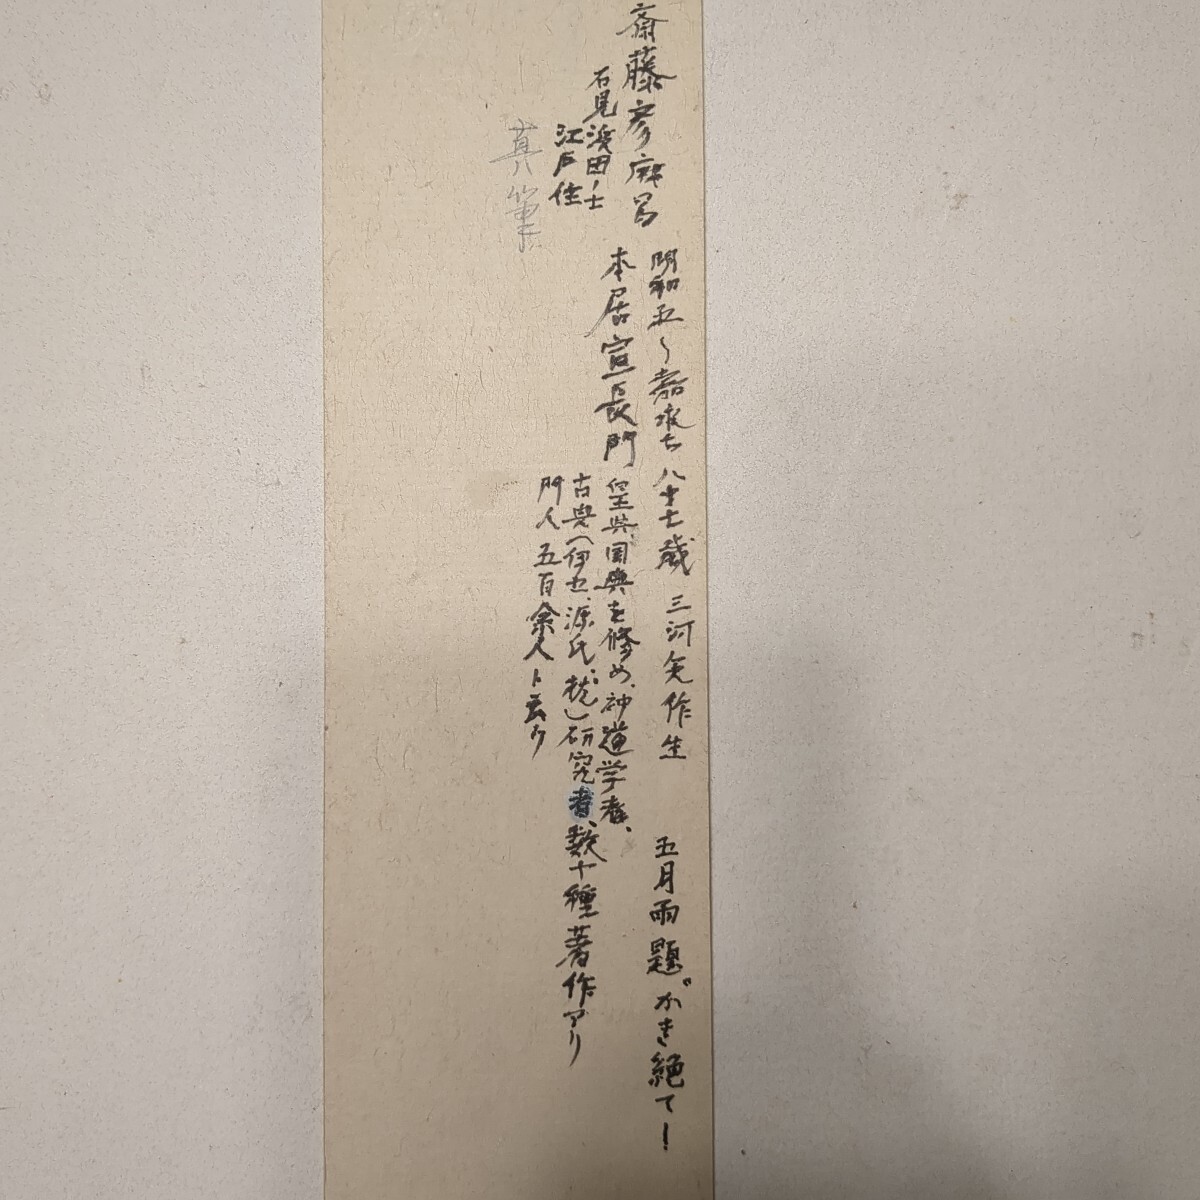 斎藤彦麻呂
石見浜田ノ士
江戸住
真筆
明和五〜嘉永七 八十七歳 三河矢作生 五月雨題がき絶て！
本居宣長門
皇典、国典を修め、神道学者、
古典（伊セ、源氏、枕）研究者、数十種著作アリ
門人五百余人ト云ウ